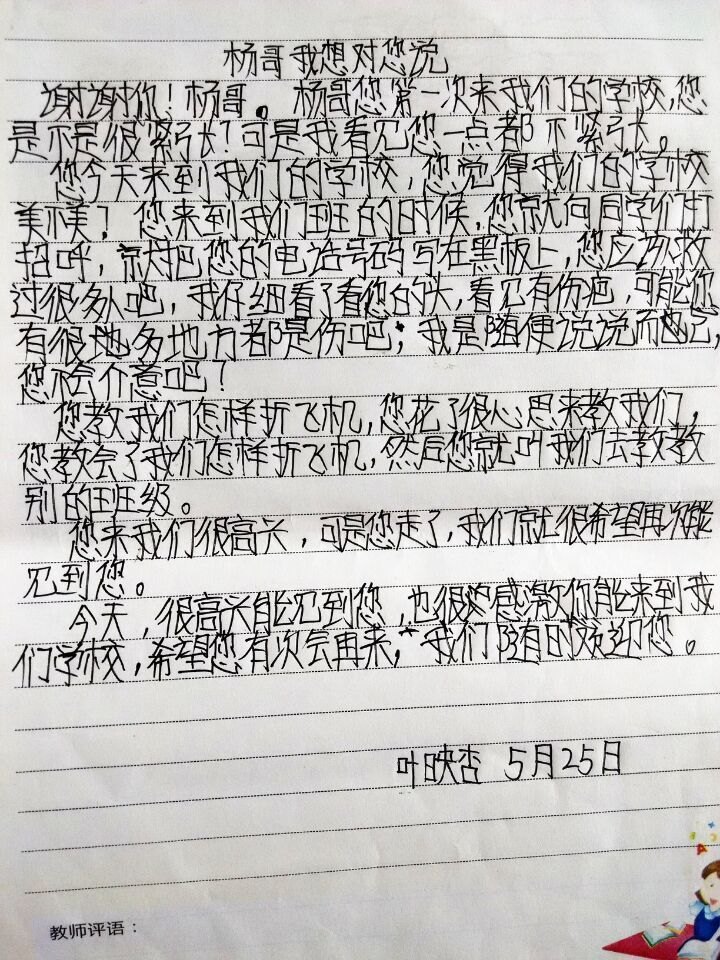 杨哥我想对您说
谢谢你！杨哥。杨哥您第一次来我们的学校，您
是不是很紧张？可是我看见您一点都不紧张。
您今天来到我们的学校，您觉得我们的学校
美不美？您来到我们班的时候，您就向同学们打
招呼，就把您的电话号码写在黑板上，您应该救
过很多人吧，我仔细看了看您的头，看见有伤疤，可能您
有很地多地方都是伤吧；我是随便说说而已，
您不会介意吧！
您教我们怎样折飞机，您花了很心思来教我们，
您教会了我们怎样折飞机，然后您就叫我们去教教
别的班级。
您来我们很高兴，可是您走了，我们就很希望再次能
见到您。
今天，很高兴能见到您，也很感激你能来到我
们学校，希望您有次会再来，我们随时欢迎您。
叶映杏 5月25日
教师评语：